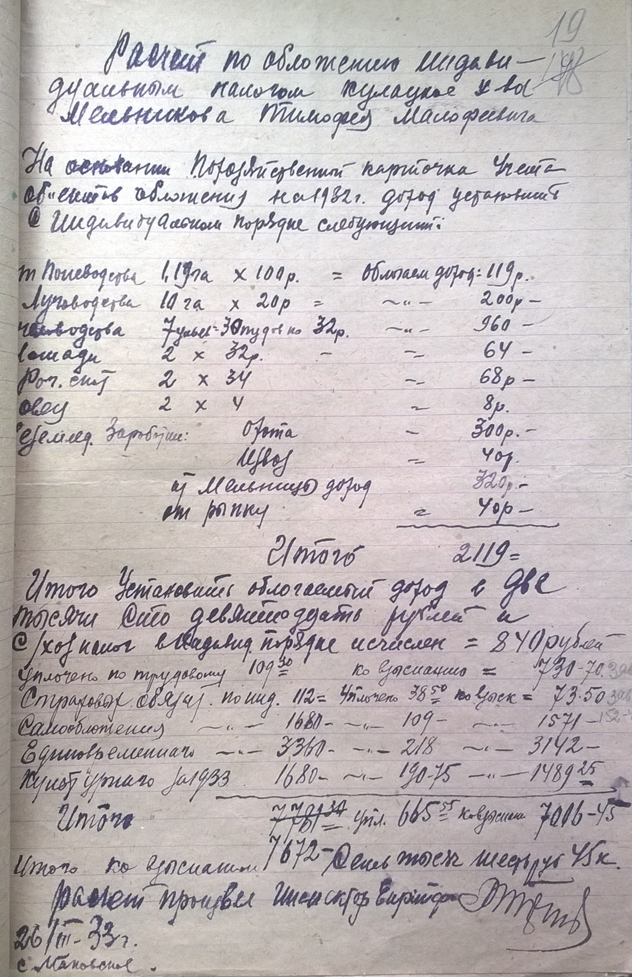 19
Расчет по обложению индиви-
дуальным налогом кулацкое х-во
Мельникова Тимофея Малофеевича
На основании Похозяйственной карточка Учета
об'ектов обложения на 1932г. доход установить
в Индивидуальном порядке следующий:
т Полеводства 1,19 га х 100р. = Облагаем доход = 119р.
Луговодства 10 га х 20р = -"- 200р -
человодства 7 ульев = 30 пудов по 32р. -"- 960 -
лошади 2 х 32р. - -"- 64 -
Рог. скот 2 х 34 = 68р -
овец 2 х 4 = 8р.
Заработки: Охота = 300р. -
Извоз = 40р.
от Мельницы доход 320р. -
от рынку = 40р -
Итого 2119 =
Итого Установить облагаемый доход в две
тысячи сто девятнадцать рублей и
с/хоз налог в индивид порядке исчислен = 840 рублей
Уплочено по трудовому 109 30 ко взысканию = 730-70
Страховых обязат. по инд. 112 = Уплочено 38 50 ко взыск = 73-50
Самообложения -"- 1680 - -"- 109 - -"- 1571 -
Единовременнаго -"- 3360 - -"- 218 -"- 3142 -
Культурнаго за 1933 1680 - -"- 190-75 -"- 1489 25
Итого упл. 665 55 ко взыскан 7006-45
7672 -
Итого ко взысканию Семь тысяч шесть руб 45 к.
Расчет произвел Инспектор
26/III-33г.
с. Маковское.